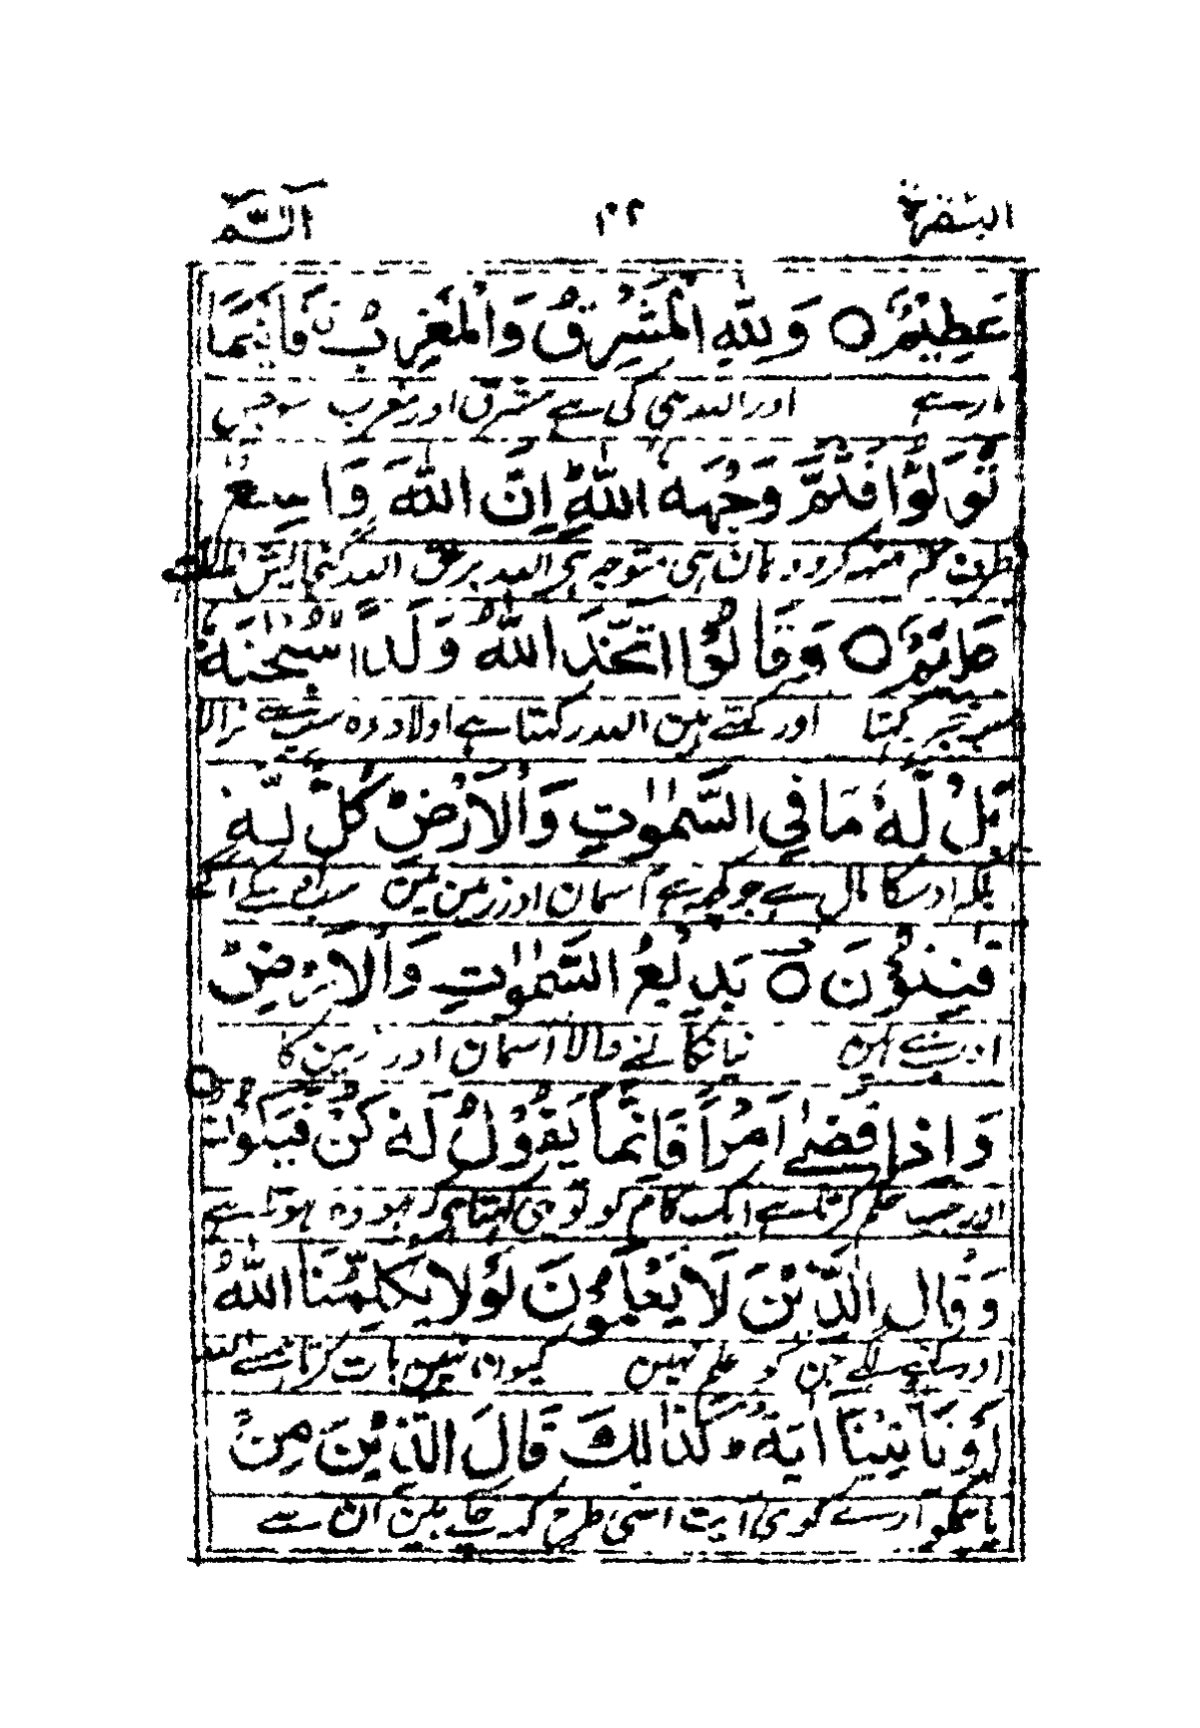 البقرة ٢٢ الٓمّٓ
عَظِيْمٌ ○ وَلِلّٰهِ الْمَشْرِقُ وَالْمَغْرِبُ فَاَيْنَمَا
مار ہے اور اللہ ہی کی ہے مشرق اور مغرب سو جس
تُوَلُّوْا فَثَمَّ وَجْهُ اللّٰهِ اِنَّ اللّٰهَ وَاسِعٌ
طرف تم منہ کرو وہان ہی متوجہ ہی اللہ برحق اللہ گنجایش
عَلِيْمٌ ○ وَقَالُوا اتَّخَذَ اللّٰهُ وَلَدًا سُبْحٰنَهٗ
خبر رکھتا اور کہتے ہین اللہ رکھتا ہے اولاد وہ سب سے نرالا
بَلْ لَّهٗ مَا فِي السَّمٰوٰتِ وَالْاَرْضِ كُلٌّ لَّهٗ
بلکہ اوسکا مال ہے جو کچھ ہے آسمان اور زمین مین سب اوسکے آگے
قٰنِتُوْنَ ○ بَدِيْعُ السَّمٰوٰتِ وَالْاَرْضِ
ادب سے ہین نیا نکالنے والا آسمان اور زمین کا
وَاِذَا قَضٰٓى اَمْرًا فَاِنَّمَا يَقُوْلُ لَهٗ كُنْ فَيَكُوْنُ
اور جب حکم کرتا ہے ایک کام کو تو یہی کہتا ہی کہ ہو وہ ہوتا ہے
وَقَالَ الَّذِيْنَ لَا يَعْلَمُوْنَ لَوْلَا يُكَلِّمُنَا اللّٰهُ
اور کہنے لگے جن کو علم نہین کیون نہین بات کرتا ہمسے اللہ
اَوْ تَأْتِيْنَآ اٰيَةٌ كَذٰلِكَ قَالَ الَّذِيْنَ مِنْ
یا ہمکو آوے کوئی آیت اسی طرح کہہ چکے ہین ان سے